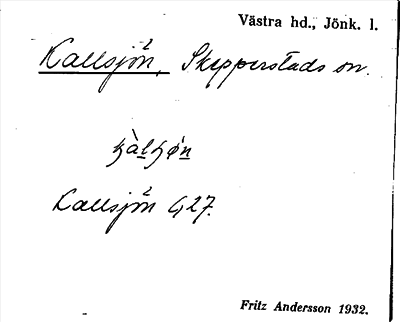 Västra hd., Jönk. l.
Kallsjön, Skepperstads sn.
Kallsjön G 27.
Fritz Andersson 1932.